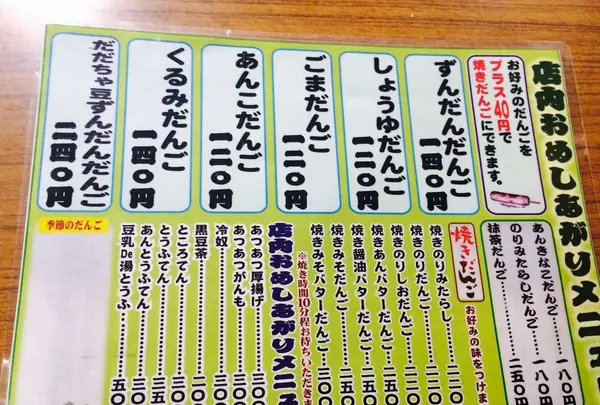 店内おめしあがりメニュ
お好みのだんごを
プラス40円で
焼きだんごにできます。
ずんだんだんご
一四〇円
しょうゆだんご
一二〇円
ごまだんご
一二〇円
あんこだんご
一二〇円
くるみだんご
一四〇円
だだちゃ豆ずんだんだんご
二四〇円
あんきなこだんご………一八〇
のりみたらしだんご………一八〇
抹茶だんご………二五〇
焼きだんご
お好みの味をつけま
焼きのりみたらし………二二〇
焼きのりだんご………二二〇
焼きのりしおだんご………二
焼きあんバターだんご………
焼き醤油バターだんご………
焼きみそバターだんご………
焼きみそだんご………二五〇
※焼き時間10分程お待ちいただきま
店内おめしあがりメニュ
あつあつ厚揚げ………三〇〇
あつあつがんも………三〇
冷奴………三〇
黒豆茶………二〇
ところてん………三〇
とうふてん………三〇
あんとうふてん………三五
豆乳De湯とうふ………五〇
季節のだんご